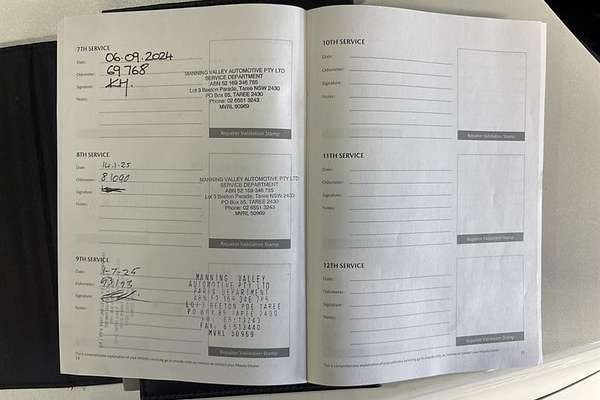 7TH SERVICE
Date: 06.09.2024
Odometer: 69768
Signature: KH.
Notes:
MANNING VALLEY AUTOMOTIVE PTY LTD
SERVICE DEPARTMENT
ABN 52 169 346 785
Lot 3 Beeton Parade, Taree NSW 2430
PO Box 85, TAREE 2430
Phone: 02 6551 3243
MVRL 50969
Repairer Validation Stamp
8TH SERVICE
Date: 14.1.25
Odometer: 81090
Signature:
Notes:
MANNING VALLEY AUTOMOTIVE PTY LTD
SERVICE DEPARTMENT
ABN 52 169 346 785
Lot 3 Beeton Parade, Taree NSW 2430
PO Box 85, TAREE 2430
Phone: 02 6551 3243
MVRL 50969
Repairer Validation Stamp
9TH SERVICE
Date: 1-7-25
Odometer:
Signature:
Notes:
MANNING VALLEY
AUTOMOTIVE PTY LTD
PARTS DEPARTMENT
ABN 52 169 346 785
LOT 3 BEETON PDE TAREE
P O BOX 85 TAREE 2430
PH: 65513243
FAX: 65513440
MVRL 50969
Repairer Validation Stamp
10TH SERVICE
Date:
Odometer:
Signature:
Notes:
Repairer Validation Stamp
11TH SERVICE
Date:
Odometer:
Signature:
Notes:
Repairer Validation Stamp
12TH SERVICE
Date:
Odometer:
Signature:
Notes:
Repairer Validation Stamp